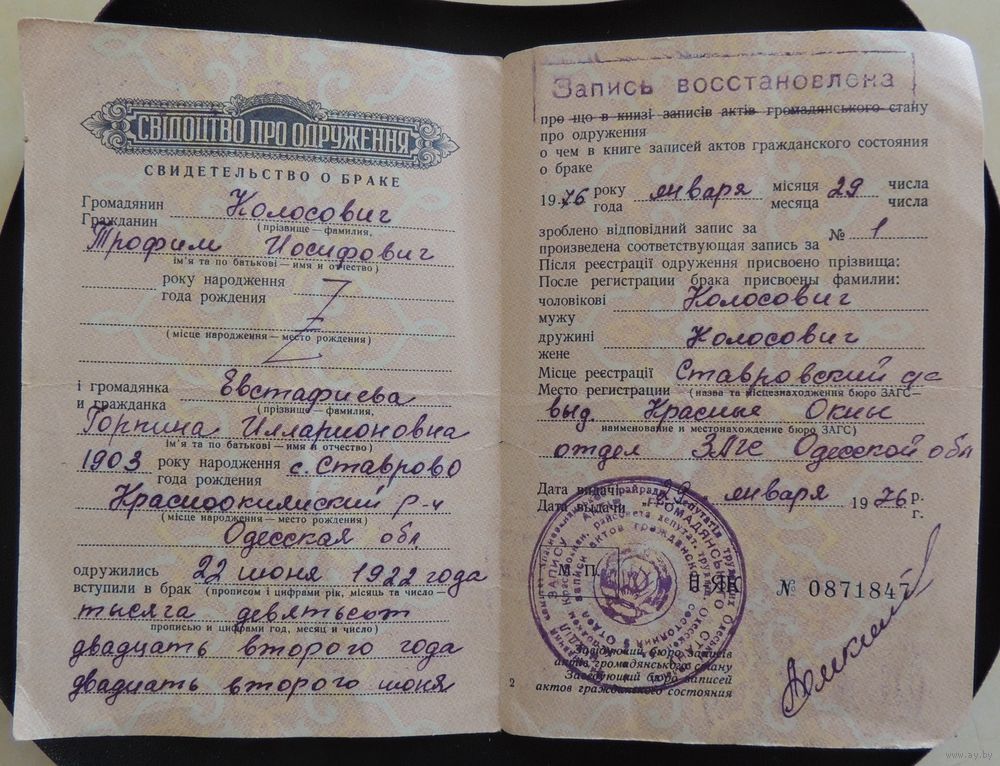 СВІДОЦТВО ПРО ОДРУЖЕННЯ
СВИДЕТЕЛЬСТВО О БРАКЕ
Громадянин
Гражданин
Колосович
(прізвище — фамилия,
Трофим Иосифович
ім'я та по батькові — имя и отчество)
року народження
года рождения
(місце народження — место рождения)
і громадянка
и гражданка
Евстафиева
(прізвище — фамилия,
Горпина Илларионовна
ім'я та по батькові — имя и отчество)
1903 року народження с. Ставрово
года рождения
Красноокнянский р-н
(місце народження — место рождения)
Одесская обл
одружились
вступили в брак
22 июня 1922 года
(прописом і цифрами рік, місяць та число —
тысяча девятьсот
прописью и цифрами год, месяц и число)
двадцать второго года
двадцать второго июня
Запись восстановлена
про що в книзі записів актів громадянського стану
про одруження
о чем в книге записей актов гражданского состояния
о браке
1976 року января місяця 29 числа
года месяца числа
зроблено відповідний запис за
произведена соответствующая запись за
№ 1
Після реєстрації одруження присвоєно прізвища:
После регистрации брака присвоены фамилии:
чоловікові
мужу
Колосович
дружині
жене
Колосович
Місце реєстрації Ставровский с/с
Место регистрации (назва та місцезнаходження бюро ЗАГС —
выд. Красные Окны
наименование и местонахождение бюро ЗАГС)
отдел ЗАГС Одесской обл
Дата видачі
Дата выдачи
29 января 1976 р.
г.
М. П.
II-ЯК № 0871847
Завідуючий бюро записів
актів громадянського стану
Заведующий бюро записей
актов гражданского состояния
2
www.ay.by